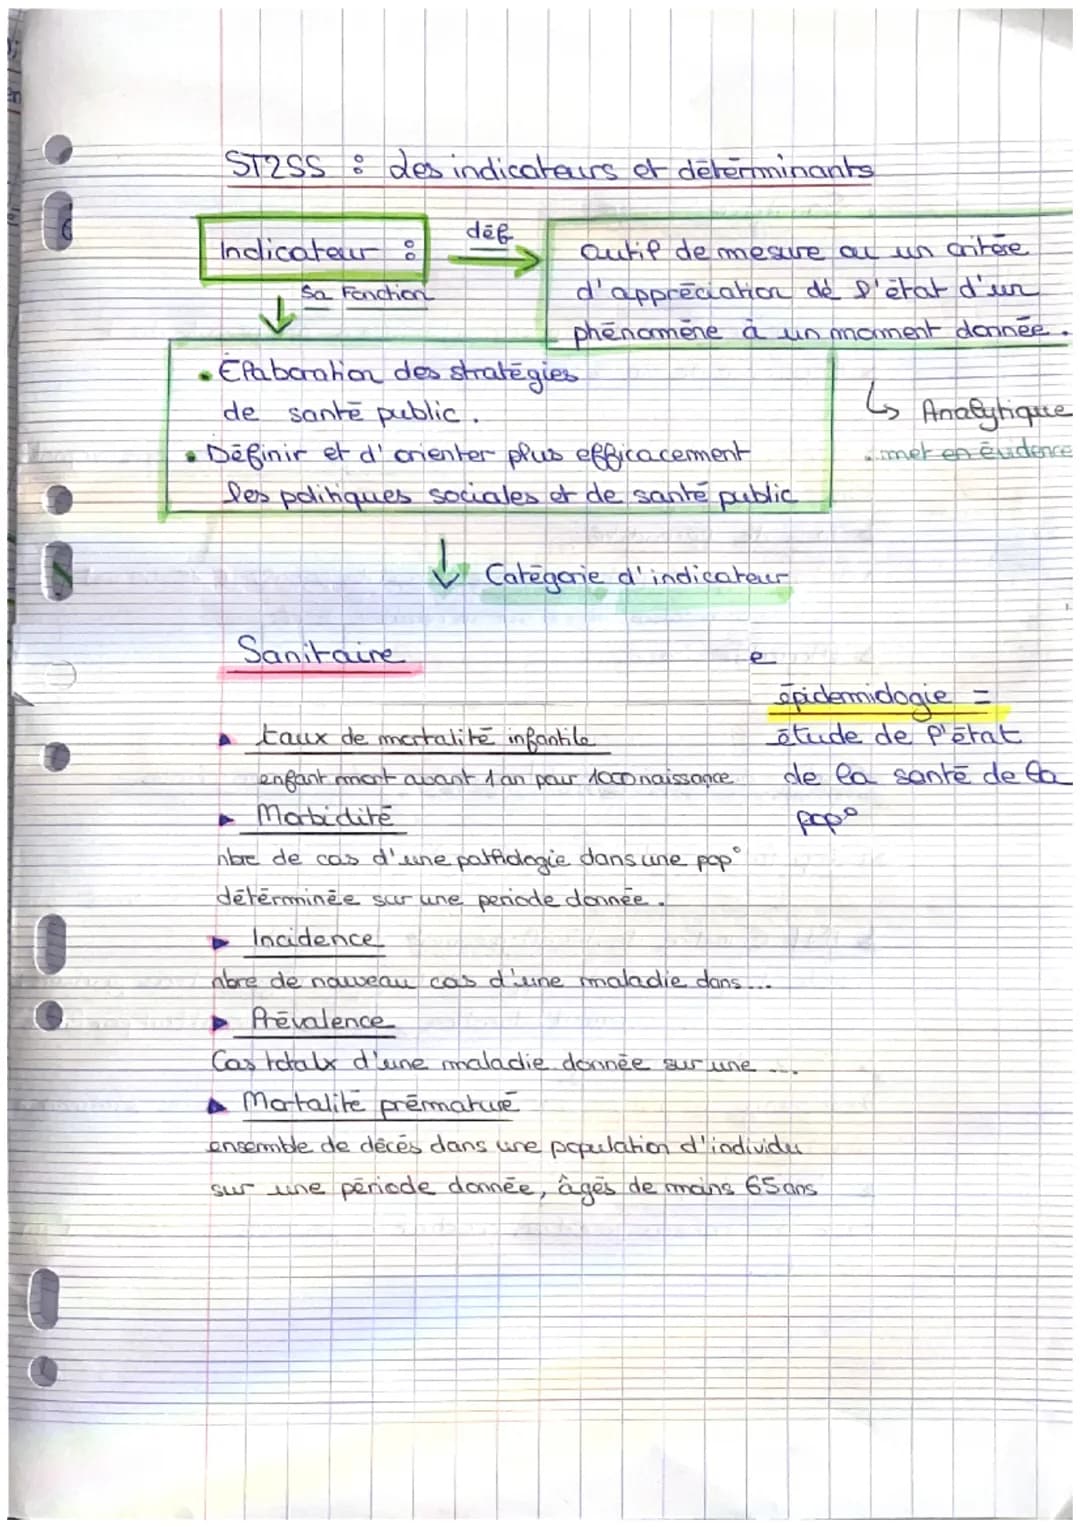 ST2SS : des indicateurs et déterminants
Indicateur :
déf
outil de mesure ou un critère
d'appréciation de l'état d'un
phénomène à un moment donnée.
Sa Fonction
• Élaboration des stratégies
de santé public.
• Définir et d'orienter plus efficacement
les politiques sociales et de santé public
↳ Analytique
. met en évidence
↓ Catégorie d'indicateur
Sanitaire
e
épidemiologie =
étude de l'état
de la santé de la
pop°
▸ taux de mortalité infantile
enfant mort avant 1 an pour 1000 naissance
▸ Morbidité
nbre de cas d'une pathologie dans une pop°
déterminée sur une periode donnée.
▸ Incidence
nbre de nouveau cas d'une maladie dans...
▸ Prévalence
Cas totalx d'une maladie donnée sur une ...
▸ Mortalité prématuré
ensemble de décés dans une population d'individu
sur une période donnée, âgés de moins 65 ans